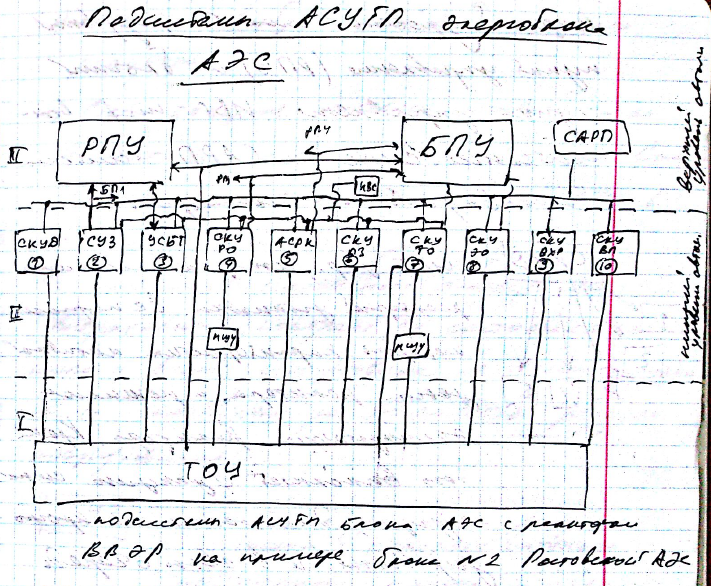 Подсистемы АСУТП энергоблока
АЭС
III
РПУ
РПУ
БПУ
САРП
верхний
уровень автом.
БП1
РЩ
ИВС
СКУД
1
СУЗ
2
УСБТ
3
СКУ
РО
4
АСРК
5
СКУ
ПЗ
6
СКУ
ТО
7
СКУ
ЭО
8
СКУ
ВХР
9
СКУ
ВП
10
нижний
уровень автом.
II
МЩУ
МЩУ
I
ТОУ
подсистемы АСУТП блока АЭС с реактором
ВВЭР на примере блока №2 Ростовской АЭС